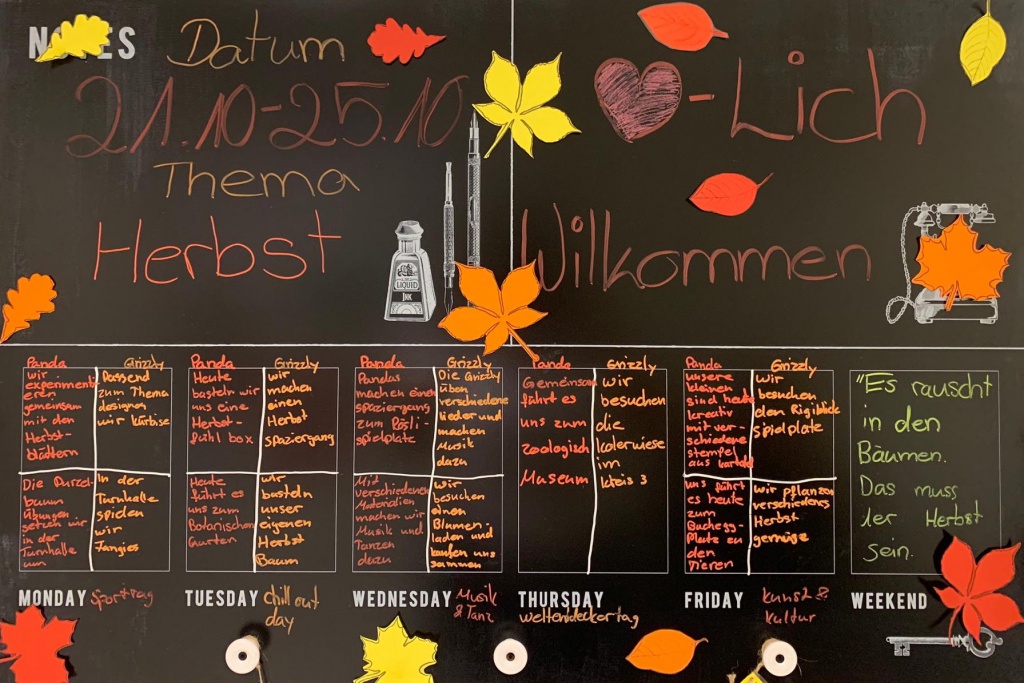 NOTES
Datum
21.10-25.10
Thema
Herbst
-Lich
Willkommen
LIQUID
INK
Panda
wir
experimenti
eren
gemeinsam
mit den
Herbst-
blättern
Grizzly
Passend
zum Thema
designen
wir kürbise
Die Purzel-
baum
Übungen
setzen wir
in der
Turnhalle
um
In der
Turnhalle
spielen
wir
Fangies
MONDAY Sporttag
Panda
Heute
basteln wir
uns eine
Herbst-
fühl box
Grizzly
wir
machen
einen
Herbst
spaziergang
Heute
führt es
uns zum
Botanischen
Garten
wir
basteln
unser
eigenen
Herbst
Baum
TUESDAY chill out
day
Panda
Pandas
machen einen
spaziergang
zum Rösli-
spielplatz
Grizzly
Die Grizzly
üben
verschiedene
lieder und
machen
Musik
dazu
Mit
verschiedenen
Materialien
machen wir
Musik und
Tanzen
dazu
wir
besuchen
einen
Blumen-
laden und
kaufen uns
WEDNESDAY Musik
& Tanz
Panda
Gemeinsam
führt es
uns zum
zoologisch
Museum
Grizzly
wir
besuchen
die
im
kreis 3
THURSDAY
weltendeckertag
Panda
unsere
kleinen
sind heute
kreativ
mit ver-
schiedene
stempel
aus kartoffel
Grizzly
wir
besuchen
den Rigiblick
spielplatz
uns führt
es heute
zum
Buchegg-
Platz zu
den
Tieren
wir pflanzen
verschiedenes
Herbst
gemüse
FRIDAY kunst &
kultur
"Es rauscht
in den
Bäumen.
Das muss
der Herbst
sein.
WEEKEND